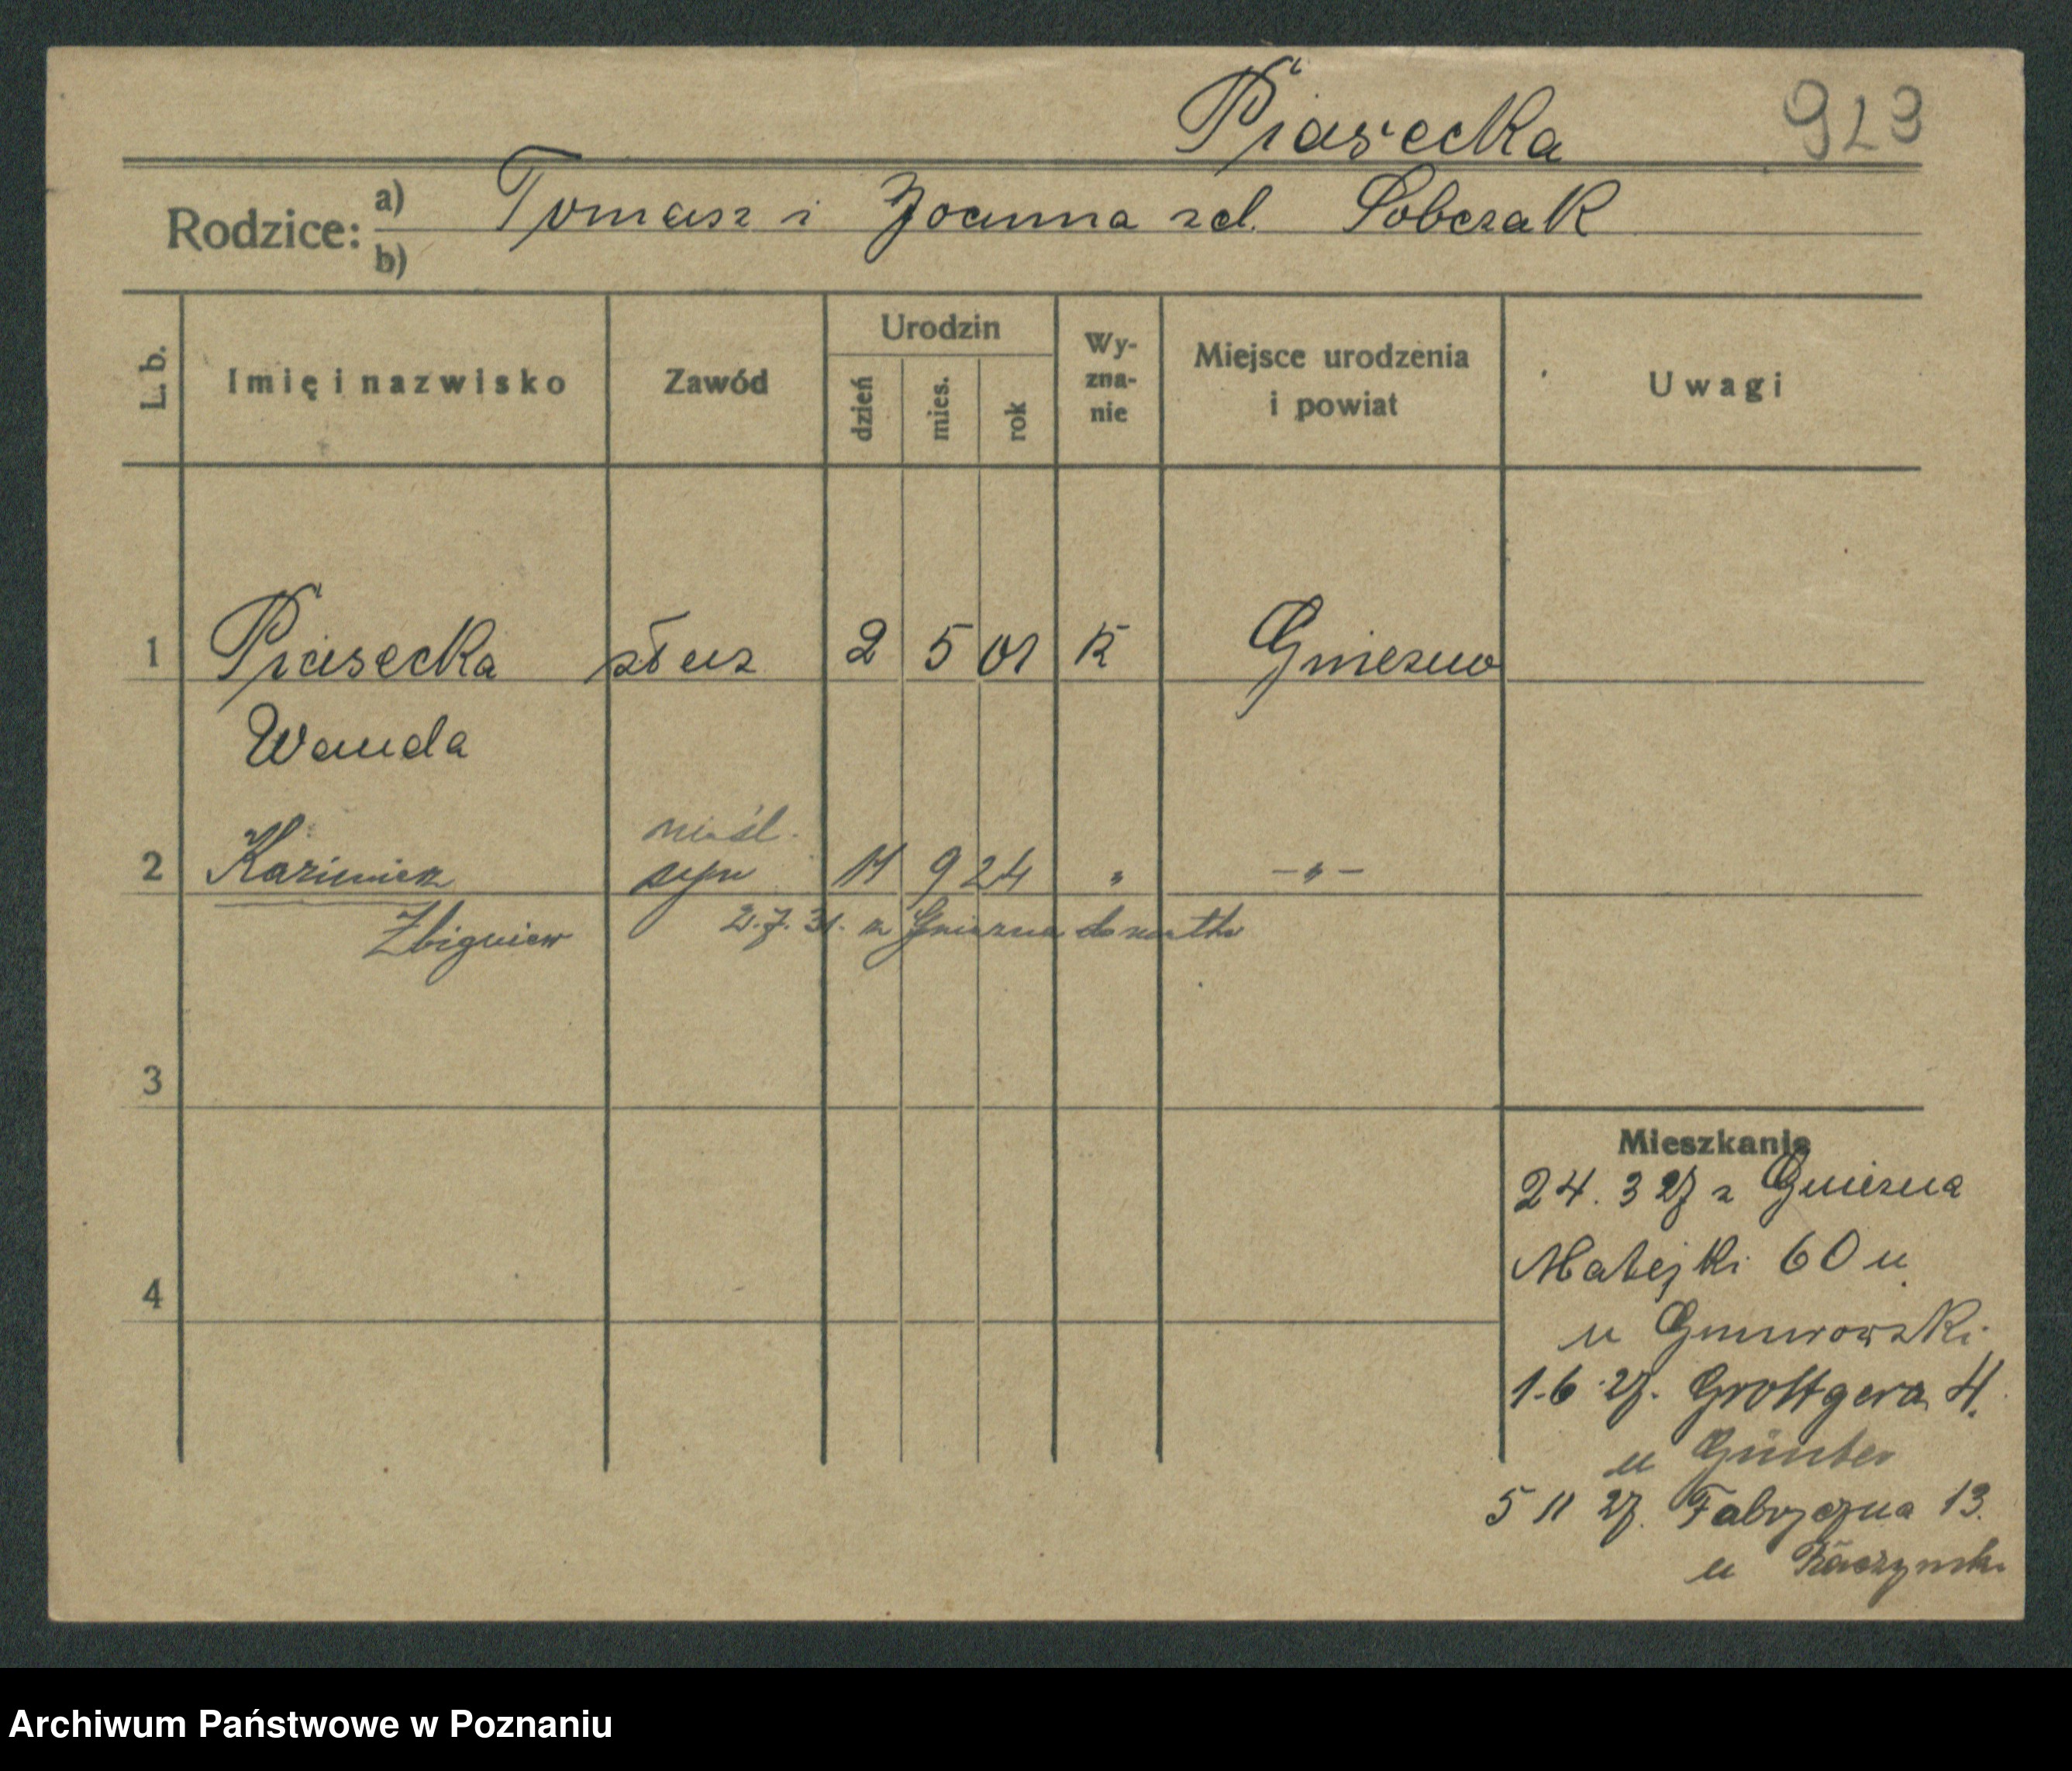 Piasecka 923
Rodzice: a) Tomasz i Joanna zd. Sobczak
b)
L. b. Imię i nazwisko Zawód Urodzin dzień mies. rok Wyznanie Miejsce urodzenia i powiat Uwagi
1 Piasecka służ 2 5 01 K Gniezno
Wanda
nieśl.
2 Kazimierz syn 11 9 24 " -"-
Zbigniew 21.7.31. z Gniezna do matki
3
Mieszkanie
24. 3 27 z Gniezna
4 Matejki 60 u
u Gmurowski
1-6 27. Grottgera 4.
u Günter
5 11 27. Fabryczna 13.
u Raczyński
Archiwum Państwowe w Poznaniu